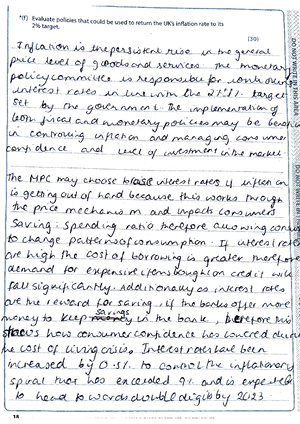 *(f) Evaluate policies that could be used to return the UK's inflation rate to its
2% target.
(30)
Inflation is the persistent rise in the general
price level of goods and services. The monetary
policy committee is responsible for controlling
interest rates in line with the 2% target
set by the government. The implementation of
both fiscal and monetary policies may be
in controlling inflation and managing consumer
confidence and level of investment in the market
The MPC may choose to raise interest rates if inflation
is getting out of hand because this works through
the price mechanism and impacts consumers
Saving: spending ratio therefore allowing
to change patterns of consumption. If interest rates
are high the cost of borrowing is greater therefore
demand for expensive items bought on credit will
fall significantly. Additionally as interest rates
are the reward for saving, if the banks offer more
money to keep savings in the bank, therefore this
shows how consumer confidence has lowered during
the cost of living crisis. Interest rates have been
increased by 0.5% to control the inflationary
spiral that has exceeded 9% and is expected
to head towards double digits by 2023.
18
DO NOT WRITE IN THIS AREA